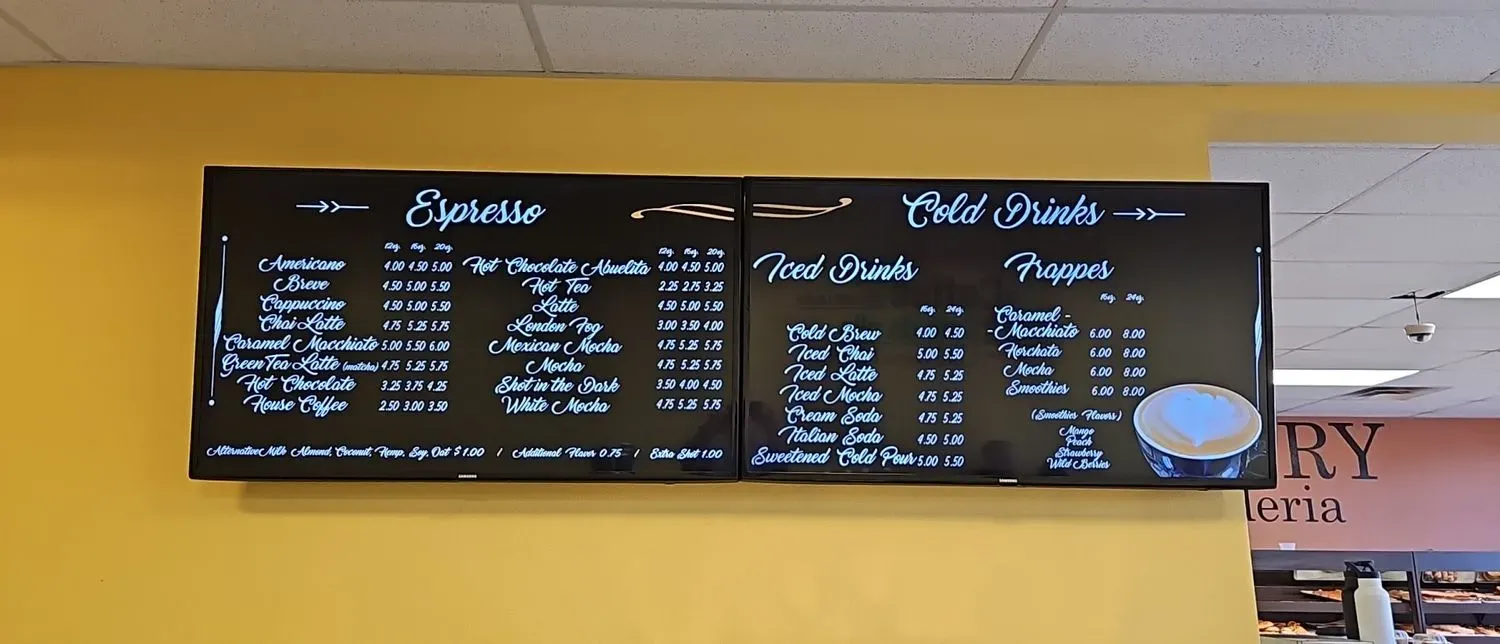 Espresso
12oz. 16oz. 20oz.
Americano 4.00 4.50 5.00
Breve 4.50 5.00 5.50
Cappuccino 4.50 5.00 5.50
Chai Latte 4.75 5.25 5.75
Caramel Macchiato 5.00 5.50 6.00
Green Tea Latte (matcha) 4.75 5.25 5.75
Hot Chocolate 3.25 3.75 4.25
House Coffee 2.50 3.00 3.50
12oz. 16oz. 20oz.
Hot Chocolate Abuelita 4.00 4.50 5.00
Hot Tea 2.25 2.75 3.25
Latte 4.50 5.00 5.50
London Fog 3.00 3.50 4.00
Mexican Mocha 4.75 5.25 5.75
Mocha 4.75 5.25 5.75
Shot in the Dark 3.50 4.00 4.50
White Mocha 4.75 5.25 5.75
Alternative Milk Almond, Coconut, Hemp, Soy, Oat $1.00 / Additional Flavor 0.75 / Extra Shot 1.00
SAMSUNG
Cold Drinks
Iced Drinks
16oz. 24oz.
Cold Brew 4.00 4.50
Iced Chai 5.00 5.50
Iced Latte 4.75 5.25
Iced Mocha 4.75 5.25
Cream Soda 4.75 5.25
Italian Soda 4.50 5.00
Sweetened Cold Pour 5.00 5.50
Frappes
16oz. 24oz.
Caramel -
-Macchiato 6.00 8.00
Horchata 6.00 8.00
Mocha 6.00 8.00
Smoothies 6.00 8.00
(Smoothies Flavors)
Mango
Peach
Strawberry
Wild Berries
SAMSUNG
RY
leria